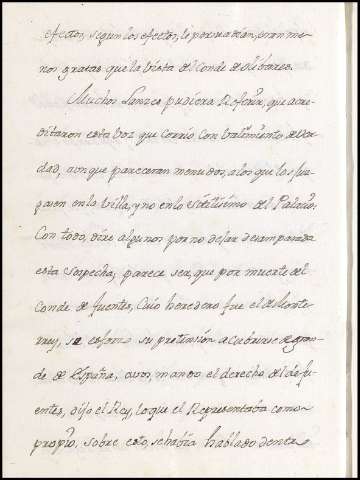 efectos, segun los efectos, le persuadian, eran me-
nos gratas que la vista del Conde de olibares.
Muchos Lances pudiera Referir, que acre-
ditaron esta voz que Corrio Con valimiento de ver-
dad, aunque pareceran menudos, a los que los juz-
guen en la villa, y no en lo Sutilisimo del Palacio.
Con todo, dire algunos por no dejar desamparada
esta sospecha; parece ser, que por muerte del
Conde de fuentes, Cuio heredero fue el de Monte-
rrey, se esforzo su pretension a Cubrirse de gran-
de de España, mando el derecho del de fu-
entes, dijo el Rey, lo que el Representaba como
propio, sobre esto, se habia hablado dentro